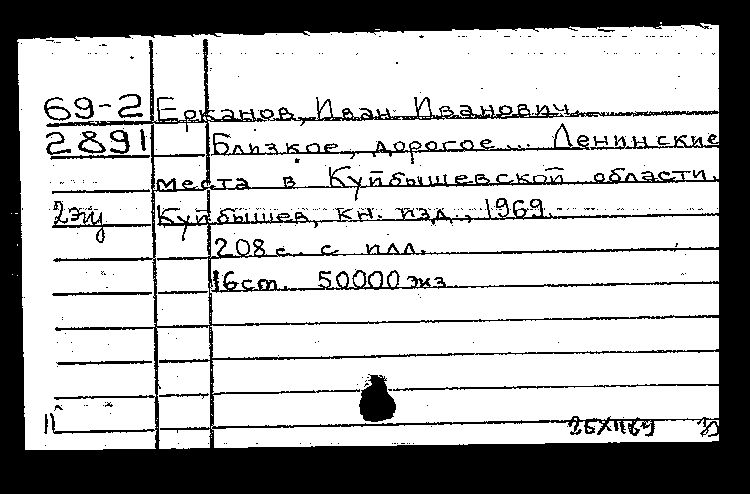 69-2 Ерканов, Иван Иванович.
2891 Близкое, дорогое... Ленинские
места в Куйбышевской области.
2 экз Куйбышев, кн. изд., 1969.
208 с. с илл.
16 см. 50000 экз
П 25XII69